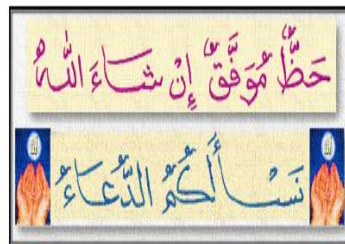 حَظٌّ مُوَفَّقٌ إِنْ شَاءَ اللهُ
نَسْأَلُكُمُ الدُّعَاءُ